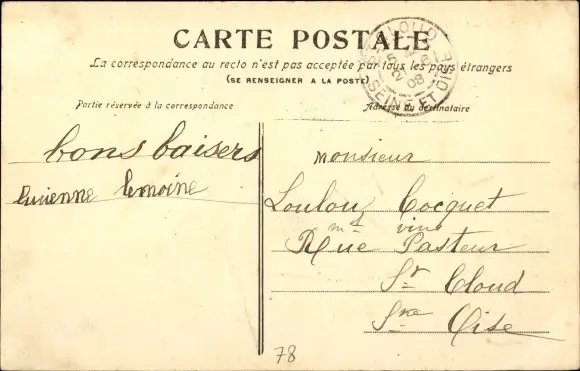 CARTE POSTALE
La correspondance au recto n'est pas acceptée par tous les pays étrangers
(SE RENSEIGNER A LA POSTE)
Partie réservée à la correspondance
Adresse du destinataire
ST CLOUD
SEINE ET OISE
08
bons baisers
Lucienne Lemoine
Monsieur
Loulou Cocquet
md vins
Rue Pasteur
St Cloud
Sne Oise
78